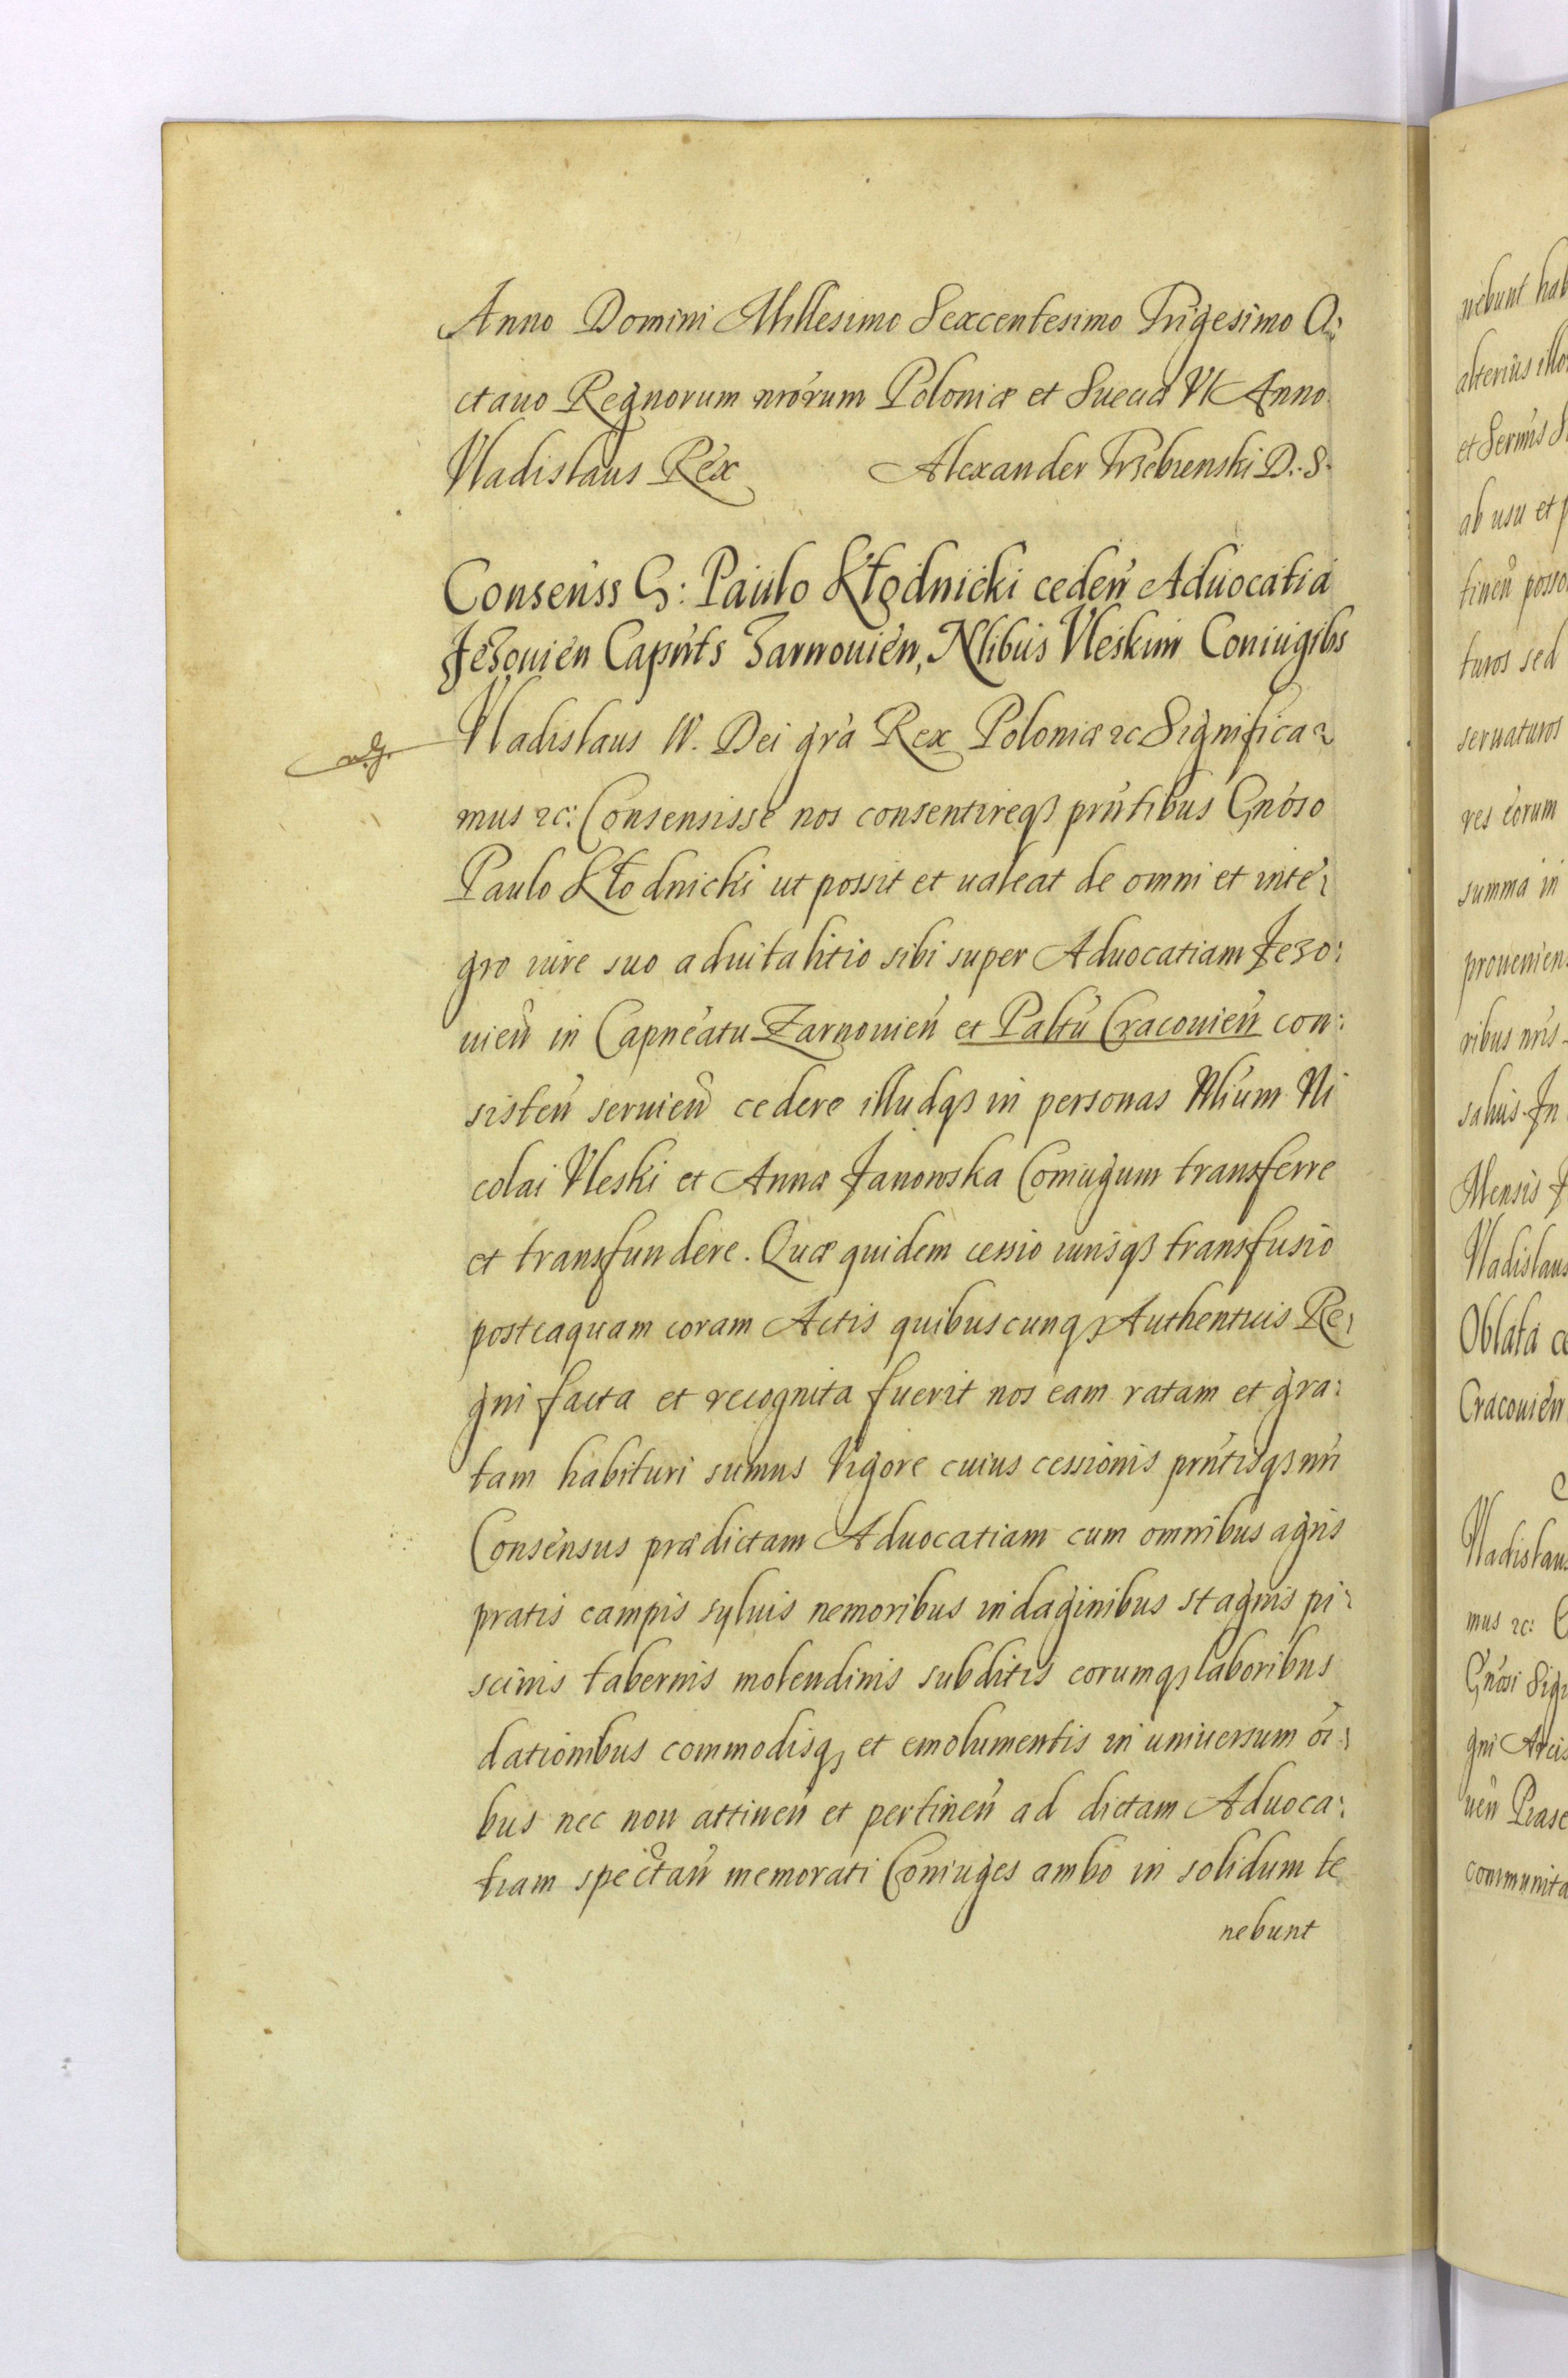 Anno Domini Millesimo Sexcentesimo Trigesimo O:
ctauo Regnorum nrórum Poloniæ et Sueciæ VI Anno
Vladislaus Rex Alexander Trzebienski D. S.
Conseńss G: Paulo Kłodnicki cedeń Aduocatiá
Jeżouień Capńts Zarnouień, Nlibus Vleskim Coniugibs
Vladislaus IV. Dei grà Rex Poloniæ ꝛc Significa:
mus ꝛc: Consensisse nos consentireqꝫ prńtibus Gnóso
Paulo Kłodnicki ut possit et ualeat de omni et inte:
gro iure suo aduitalitio sibi super Aduocatiam Jezo:
uień in Capneátu Zarnouień et Paltú Cracouień con:
sisteń seruień cedere illudqꝫ in personas Nlium Ni
colai Vleski et Annæ Janowska Coniugum transferre
et transfundere. Quæ quidem cessio iurisqꝫ transfusio
posteaquam coram Actis quibuscunqꝫ Authenticis Re:
gni facta et recognita fuerit nos eam ratam et gra:
tam habituri sumus Vigore cuius cessionis prńtisqꝫ nri
Consensus prædictam Aduocatiam cum omnibus agris
pratis campis syluis nemoribus indaginibus stagnis pi:
scinis tabernis molendinis subditis eorumqꝫ laboribus
dationibus commodisqꝫ et emolumentis in uniuersum oi:
bus nec non attineń et pertineń ad dictam Aduoca:
tiam spectań memorati Coniuges ambo in solidum te
nebunt
nebunt hab
alterius illo
et Sermis S
ab usu et p
tineń posso
turos sed
seruaturos
res eorum
summa in
prouenien
ribus nris
saluis In
Mensis J
Vladislaus
Oblata
Cracouień
Vladislaus
mus ꝛc: C
Gnósi Sig
gni Arcis
ueń
communita